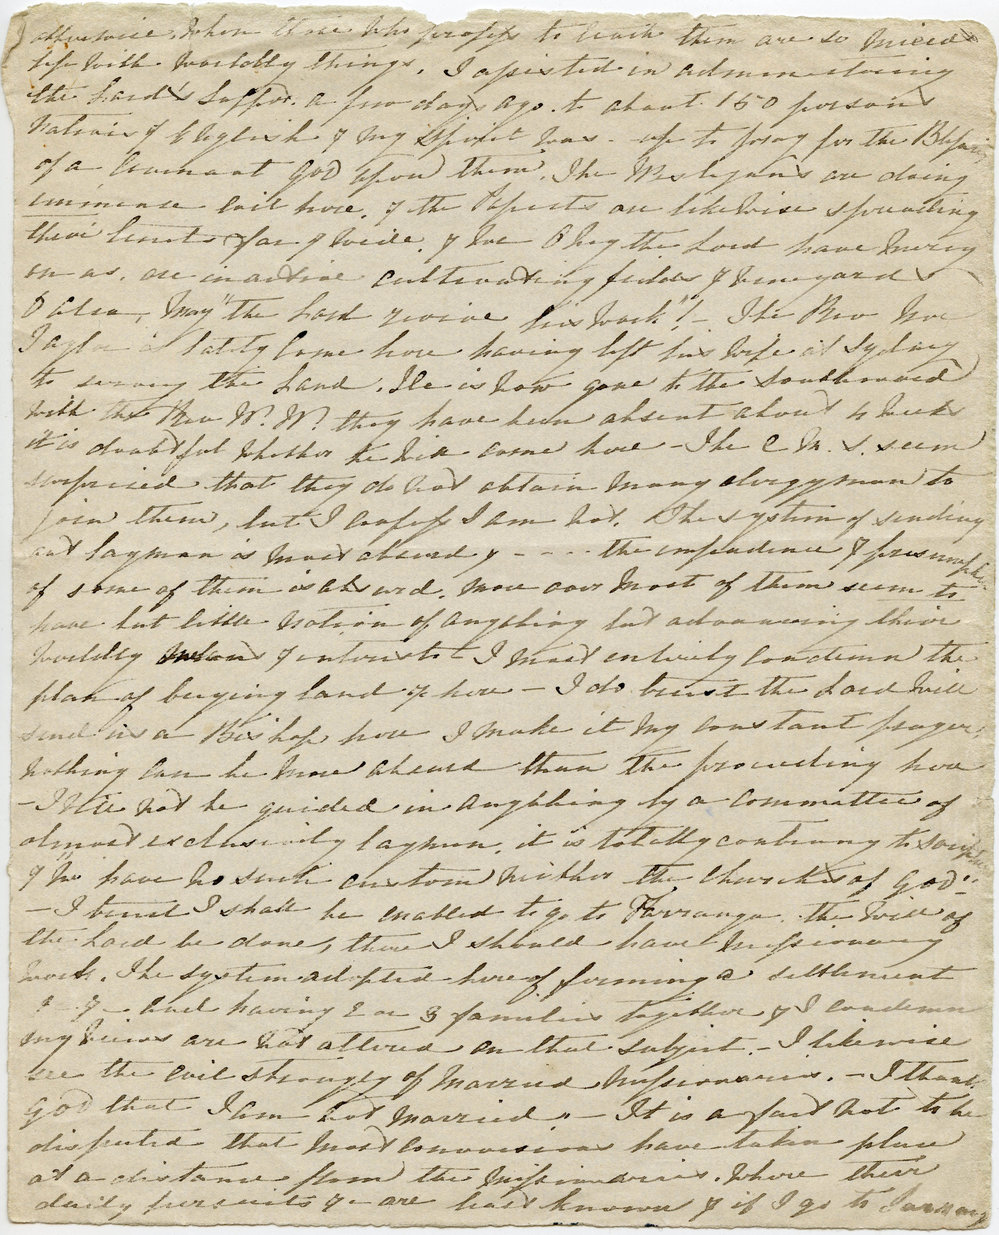 otherwise, when those who profess to teach them are so mixed
up with worldly things. I assisted in administering
the Lord's Supper a few days ago to about 150 persons
Natives & English & my spirit was up to pray for the Blessing
of a Covenant God upon them. The Wesleyans are doing
immence evil here, & the Papists are likewise spreading
their far & wide, & we O may the Lord have Mercy
on us, are inactive cultivating fields & vineyards
O alas, may "the Lord revive his work"! – The Rev Mr
Taylor is lately come here having left his wife at Sydney
to survey the Land. He is now gone to the Southward
with the Rev W. W. they have been absent about 4 weeks
it is doubtful whether he will come here – The C. M. S. seem
surprised that they do not obtain many clergymen to
join them, but I confess I am not. The system of sending
out laymen is most absurd & - - - - the impudence & presumption
of some of them is absurd, more over most of them seem to
have but little notion of anything but advancing their
worldly & interests – I most entirely condemn the
plan of buying land &c here – I do trust the Lord will
send us a Bishop here I make it my constant prayer,
nothing can be more absurd than the proceeding here
– I will not be guided in anything by a committee of
almost exclusively laymen, it is totally contrary to scripture
& "We have no such custom neither the Churches of God"
– I trust I shall be enabled to go to Tarranga. the will of
the Lord be done, there I should have Missionary
work. The system adopted here of forming a settlement
&c – and having 2 or 3 families together &c I condemn
my views are not altered on that subject. – I likewise
see the evil strongly of Married Missionaries. – I thank
God that I am not married. – It is a fact not to be
disputed that most conversions have taken place
at a distance from the Missionaries. Where their
daily pursuits &c are least known & if I go to